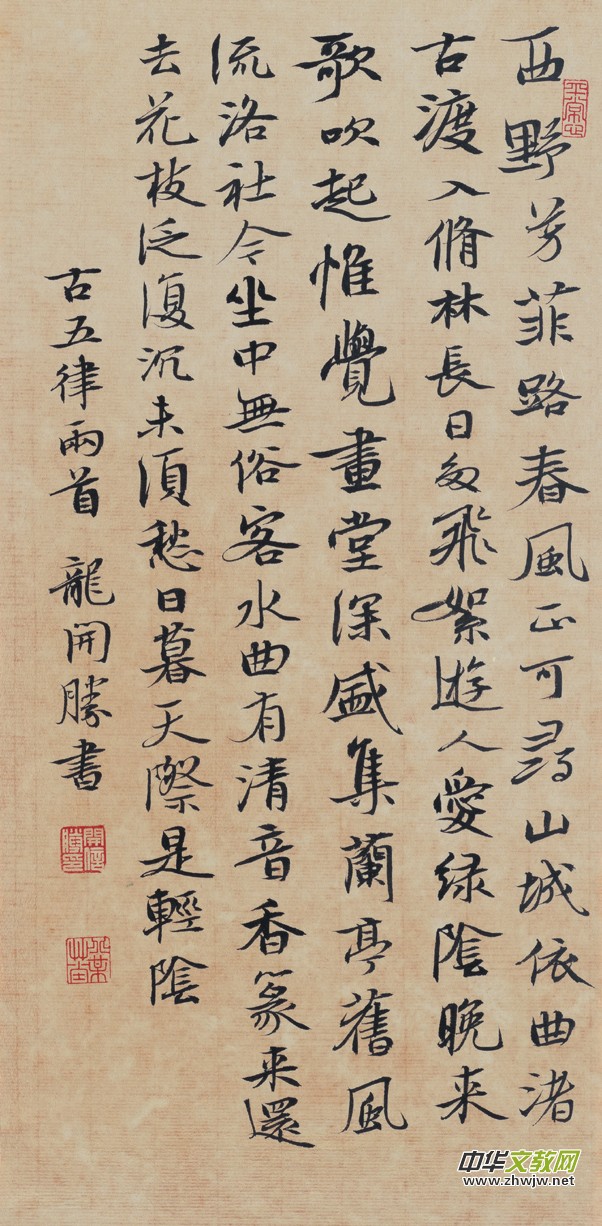 西野芳菲路春風正可尋山城依曲渚
古渡入脩林長日多飛絮遊人愛綠陰晚来
歌吹起惟覺畫堂深盛集蘭亭舊風
流洛社今坐中無俗客水曲有清音香篆来還
去花枝泛復沉未須愁日暮天際是輕陰
古五律兩首 龍開勝書
中华文教网
www.zhwjw.net